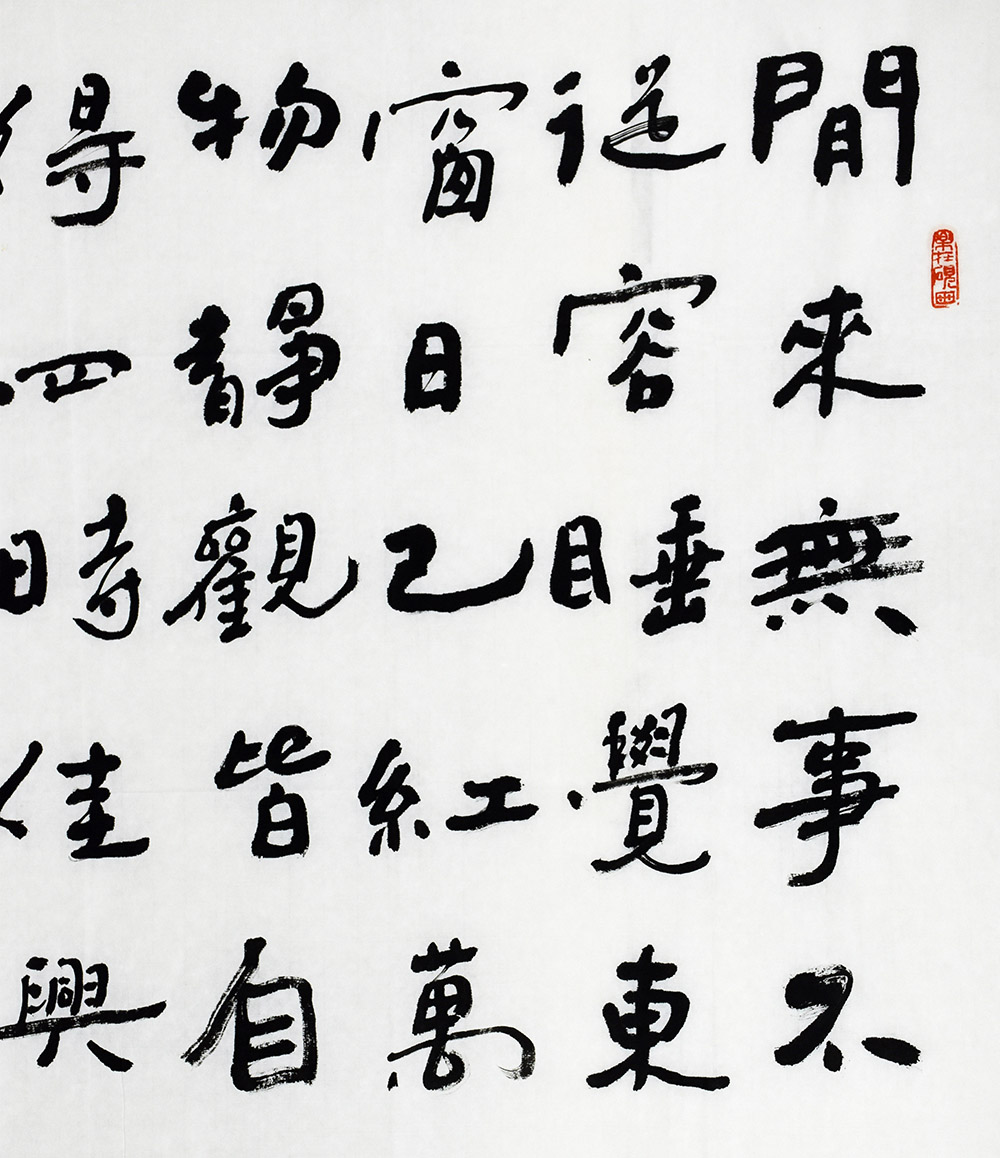 樂在硯田
閒來無事不
從容睡覺東
窗日已紅萬
物靜觀皆自
得四時佳興